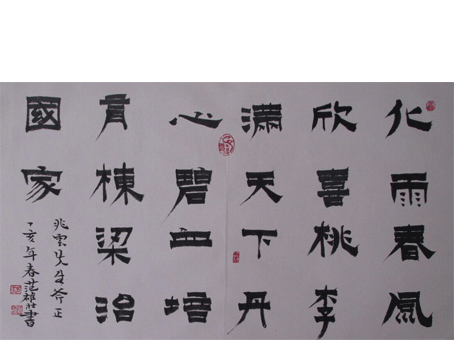 化雨春風
欣喜桃李
滿天下丹
心碧血培
育棟梁治
國家
兆雲先生斧正
丁亥年春范雄書